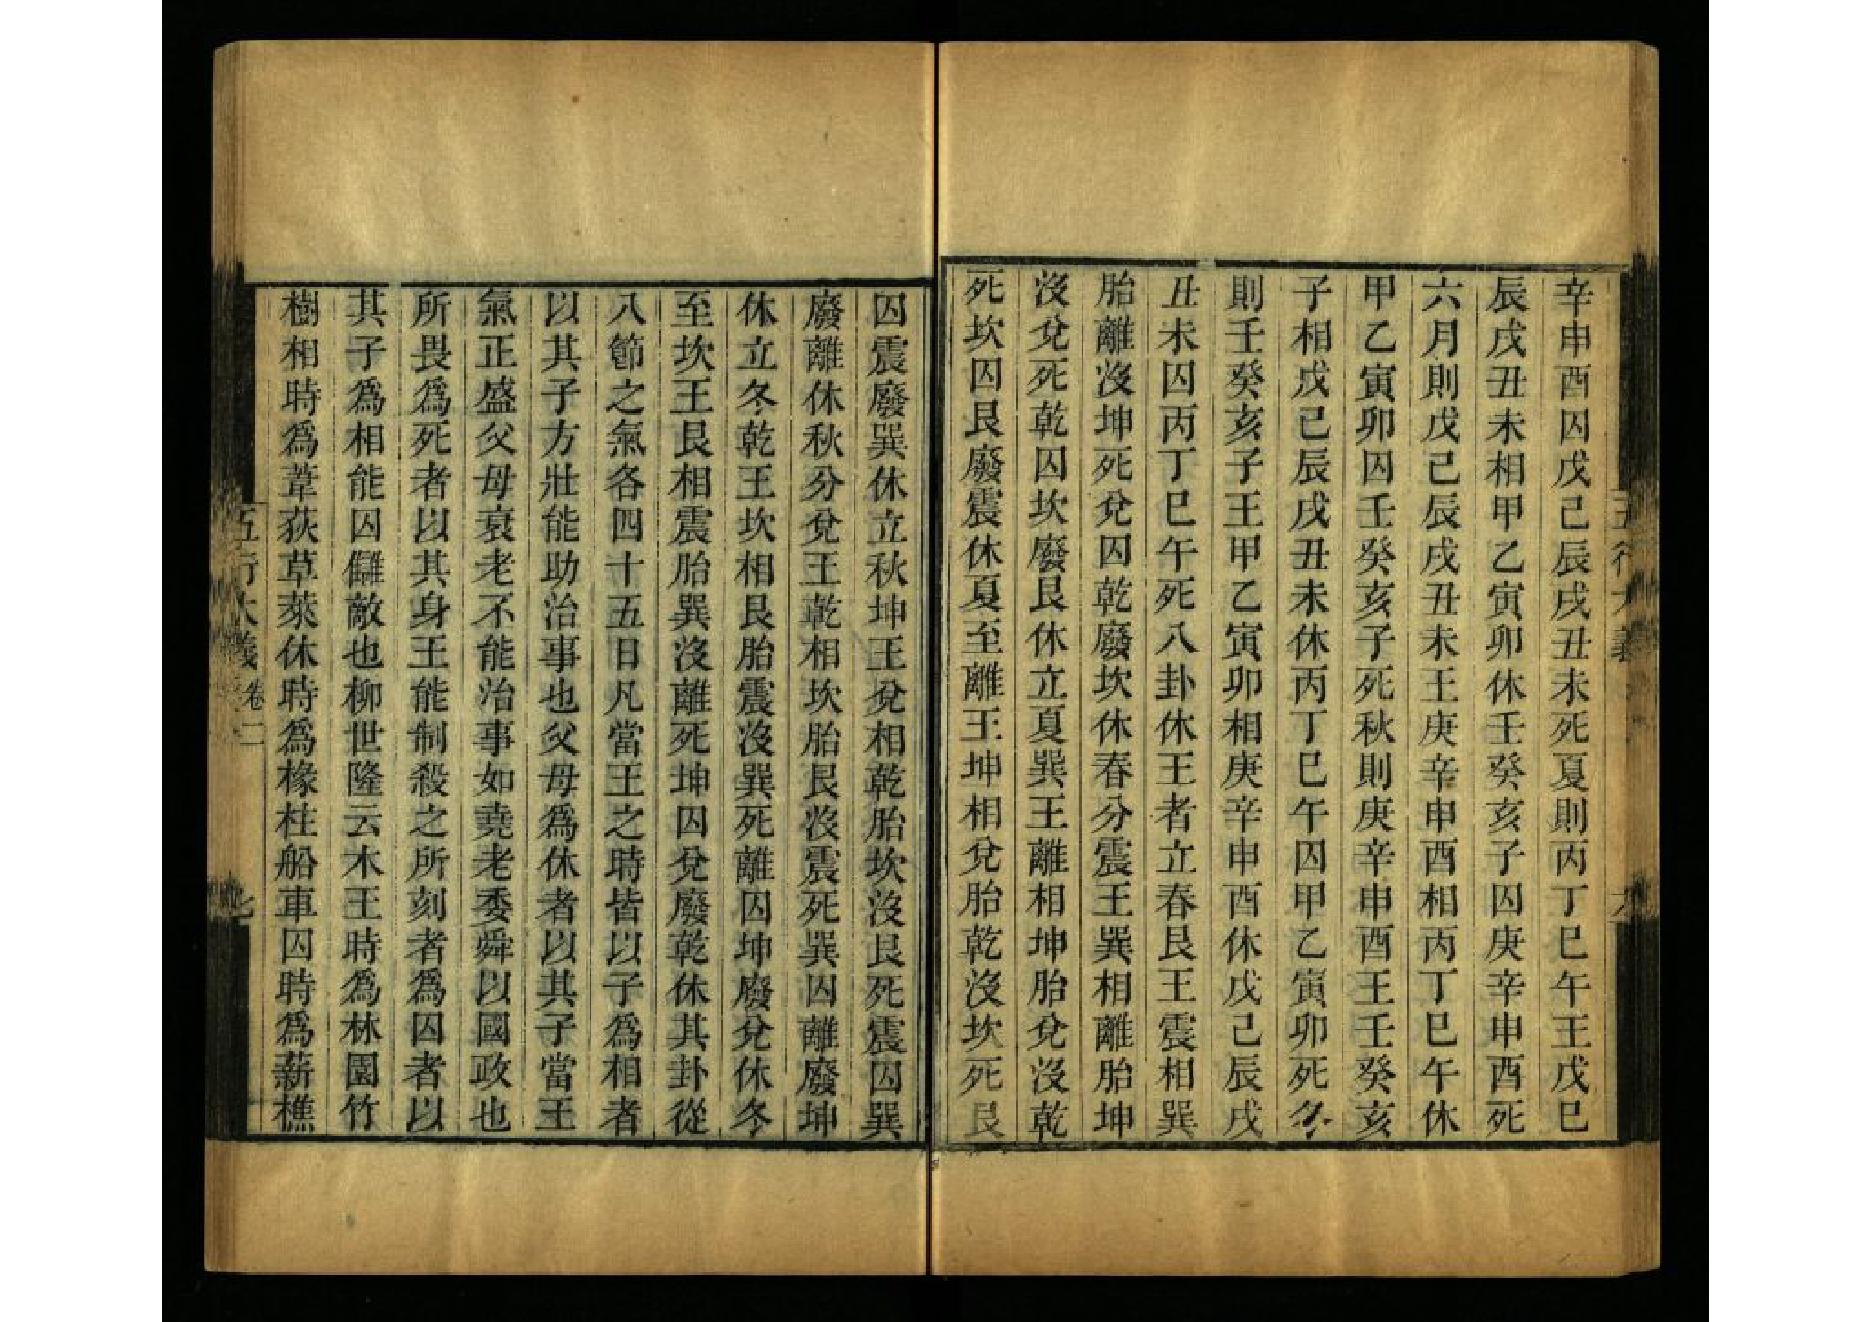 辛申酉囚戊己辰戌丑未死夏則丙丁巳午王戊巳
辰戌丑未相甲乙寅卯休壬癸亥子囚庚辛申酉死
六月則戊己辰戌丑未王庚辛申酉相丙丁巳午休
甲乙寅卯囚壬癸亥子死秋則庚辛申酉王壬癸亥
子相戊己辰戌丑未休丙丁巳午囚甲乙寅卯死冬
則壬癸亥子王甲乙寅卯相庚辛申酉休戊己辰戌
丑未囚丙丁巳午死八卦休王者立春艮王震相巽
胎離沒坤死兌囚乾廢坎休春分震王巽相離胎坤
沒兌死乾囚坎廢艮休立夏巽王離相坤胎兌沒乾
死坎囚艮廢震休夏至離王坤相兌胎乾沒坎死艮
囚震廢巽休立秋坤王兌相乾胎坎沒艮死震囚巽
廢離休秋分兌王乾相坎胎艮沒震死巽囚離廢坤
休立冬乾王坎相艮胎震沒巽死離囚坤廢兌休冬
至坎王艮相震胎巽沒離死坤囚兌廢乾休其卦從
八節之氣各四十五日凡當王之時皆以子爲相者
以其子方壯能助治事也父母爲休者以其子當王
氣正盛父母衰老不能治事如堯老委舜以國政也
所畏爲死者以其身王能制殺之所刻者爲囚者以
其子爲相能囚讎敵也柳世隆云木王時爲林園竹
樹相時爲葦荻草萊休時爲椽柱船車囚時爲薪樵
五行大義 卷二